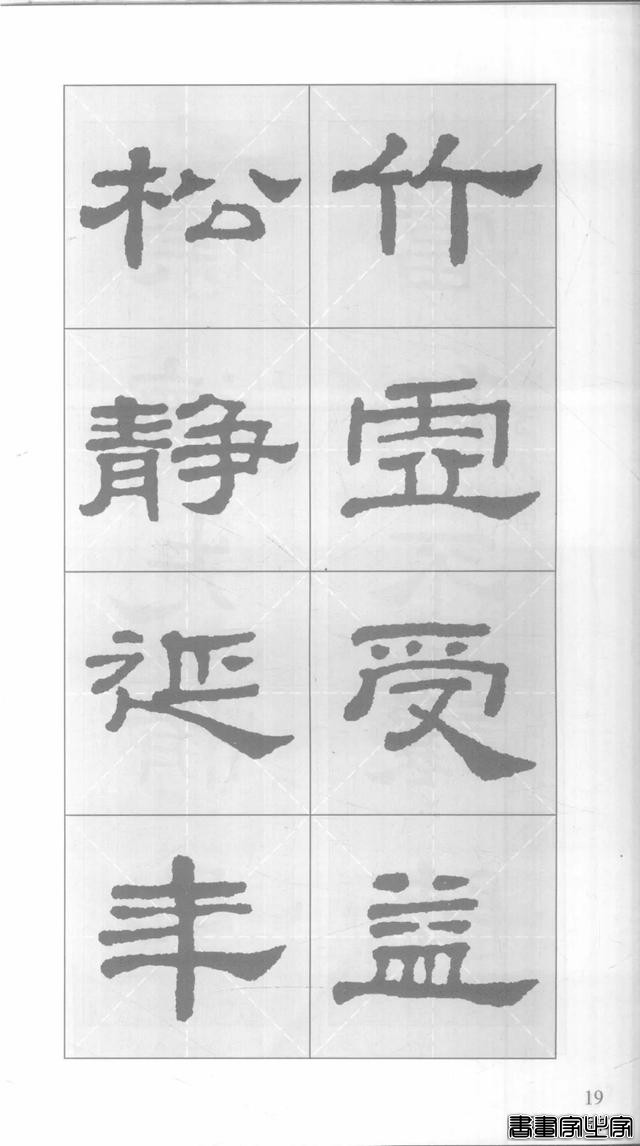 竹虚受益
松静延年
19
書畫家之家